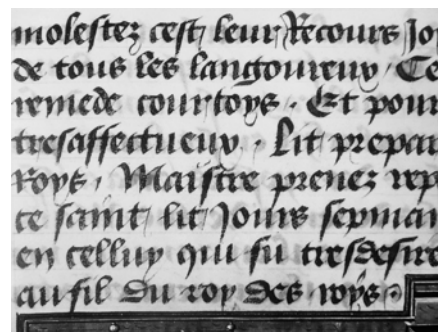 molestez cest leur Recours Jo
de tous les langoureux Ce
remede courtoys. Et pour
tresaffectueux. Lit prepar
Roys, Maistre prenez rep
ce saint lit Jours sepmai
en celluy qui fu tresdesire
au fil du roy des roys